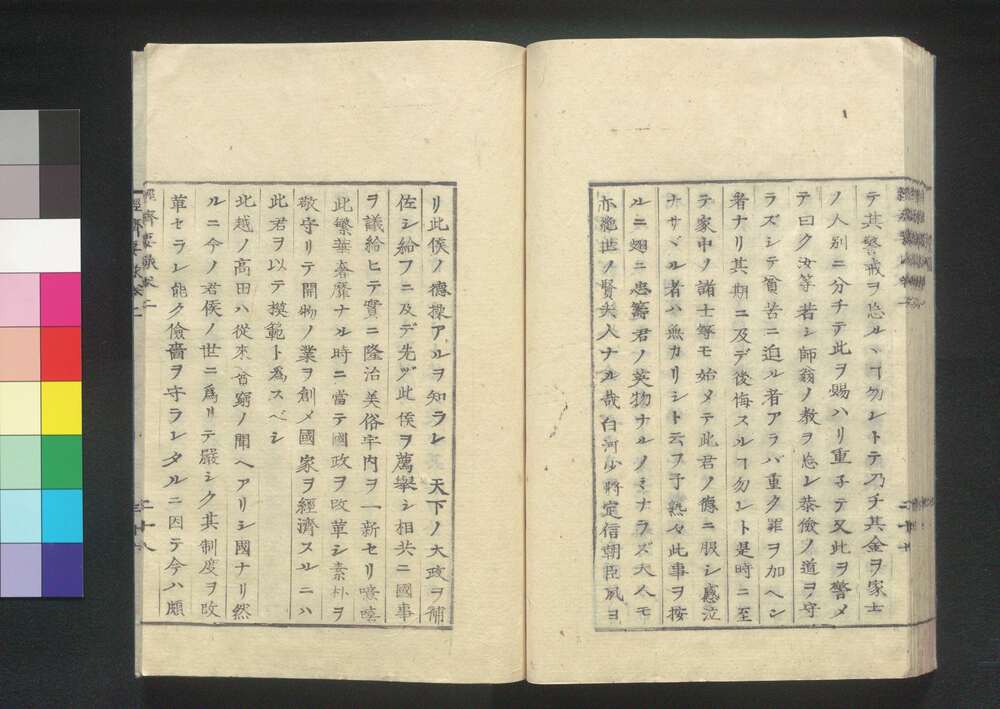 テ其警戒ヲ怠ルヿ勿レトテ乃チ其金ヲ家士
ノ人別ニ分チテ此ヲ賜ハリ重子テ又此ヲ警メ
テ曰ク汝等若シ師翁ノ教ヲ怠レ恭儉ノ道ヲ守
ラズシテ貧苦ニ迫ル者アラバ重ク罪ヲ加ヘン
者ナリ其期ニ及デ後悔スルヿ勿レト是時ニ至
テ家中ノ諸士等モ始メテ此君ノ德ニ服シ感泣
ナサヾル者ハ無カリシト云フ予熟々此事ヲ按
ルニ翅ニ忠籌君ノ英物ナルノミナラズ夫人モ
亦絶世ノ賢夫人ナル哉白河少將定信朝臣夙ヨ
リ此侯ノ德操アルヲ知ラレ天下ノ大政ヲ補
佐シ給フニ及デ先ヅ此侯ヲ薦擧シ相共ニ國事
ヲ議給ヒテ實ニ隆治美俗宇内ヲ一新セリ噫嘻
此繁華奢靡ナル時ニ當テ國政ヲ改革シ素朴ヲ
敬守リテ開物ノ業ヲ創メ國家ヲ經濟スルニハ
此君ヲ以テ摸範ト爲スベシ
北越ノ高田ハ從來ノ聞ヘアリシ國ナリ然
ルニ今ノ君侯ノ世ニ爲リテ嚴シク其制度ヲ改
革セラレ能ク儉嗇ヲ守ラレタルニ因テ今ハ頗
經濟要錄卷二
二十八